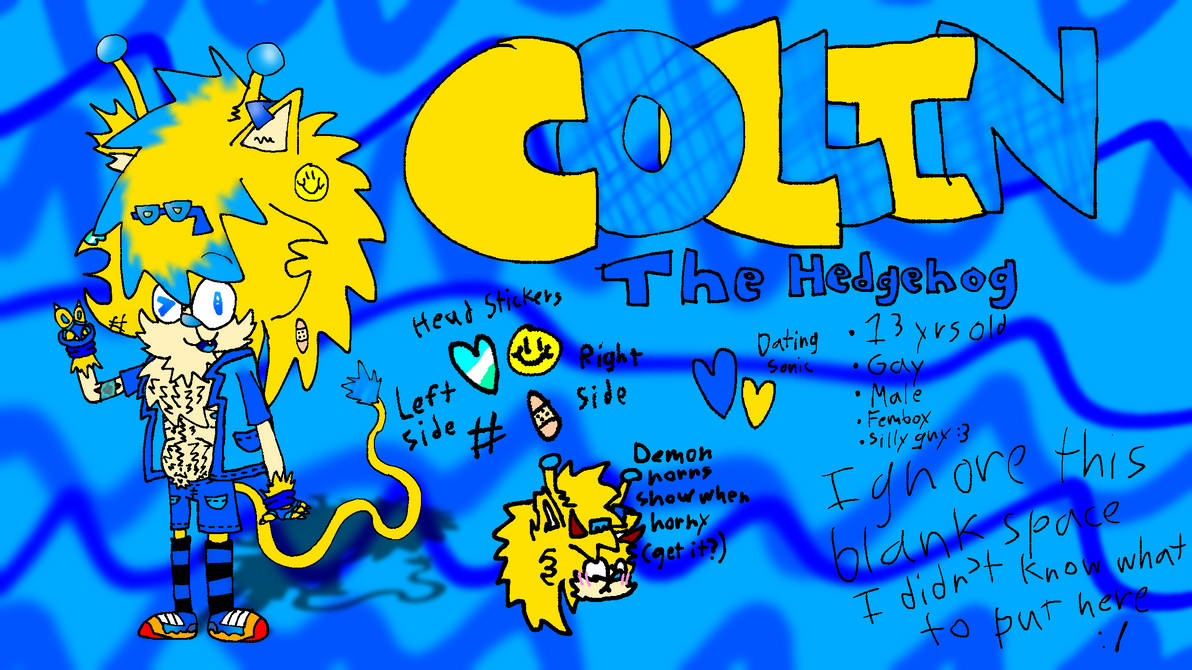 COLIN
The Hedgehog
Head Stickers
Left
side #
Right
side
Dating
Sonic
• 13 yrs old
• Gay
• Male
• Femboy
• silly guy :3
Demon
horns
show when
horny
(get it?)
Ignore this
blank space
I didn't know what
to put here
:/